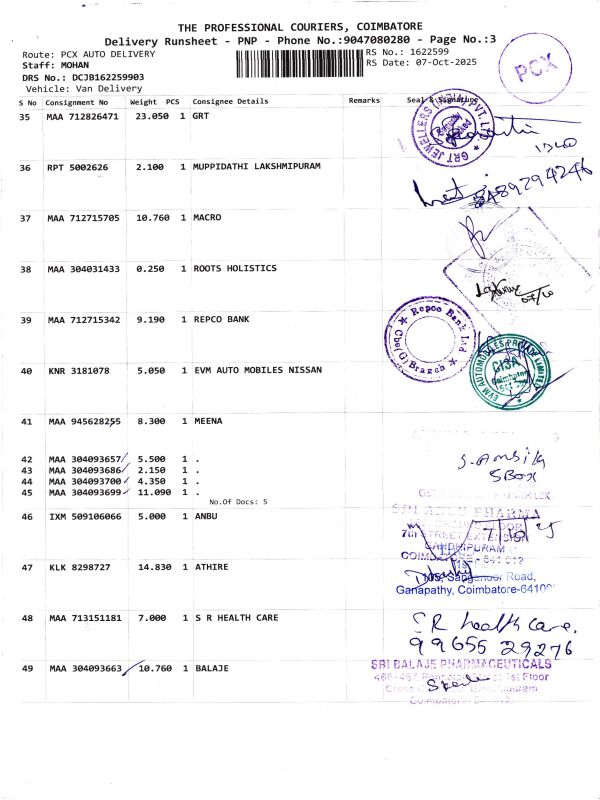 THE PROFESSIONAL COURIERS, COIMBATORE
Delivery Runsheet - PNP - Phone No.:9047080280 - Page No.:3
Route: PCX AUTO DELIVERY
RS No.: 1622599
Staff: MOHAN
RS Date: 07-Oct-2025
DRS No.: DCJB162259903
Vehicle: Van Delivery
PCX
S No Consignment No Weight PCS Consignee Details Remarks Seal & Signature
35 MAA 712826471 23.050 1 GRT
GRT JEWELLERS (INDIA) PVT. LTD
36 RPT 5002626 2.100 1 MUPPIDATHI LAKSHMIPURAM
37 MAA 712715705 10.760 1 MACRO
38 MAA 304031433 0.250 1 ROOTS HOLISTICS
07/10
39 MAA 712715342 9.190 1 REPCO BANK
Repco Bank Ltd
Cbe(G) Branch
40 KNR 3181078 5.050 1 EVM AUTO MOBILES NISSAN
EVM AUTOMOBILES PRIVATE LIMITED
Coimbatore
41 MAA 945628255 8.300 1 MEENA
42 MAA 304093657 5.500 1 .
43 MAA 304093686 2.150 1 .
44 MAA 304093700 4.350 1 .
45 MAA 304093699 11.090 1 .
No.Of Docs: 5
S. Ambika
SBOX
46 IXM 509106066 5.000 1 ANBU
PHARMA
7th STREET EXTENSION
GANDHIPURAM
47 KLK 8298727 14.830 1 ATHIRE
Sanganoor Road,
Ganapathy, Coimbatore-64100
48 MAA 713151181 7.000 1 S R HEALTH CARE
SR health care.
99655 29276
49 MAA 304093663 10.760 1 BALAJE
SRI BALAJE PHARMACEUTICALS
1st Floor